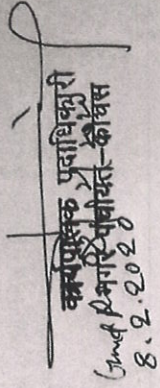 कार्यपालक पदाधिकारी
नगर पंचायत-कोचस
8.2.2020